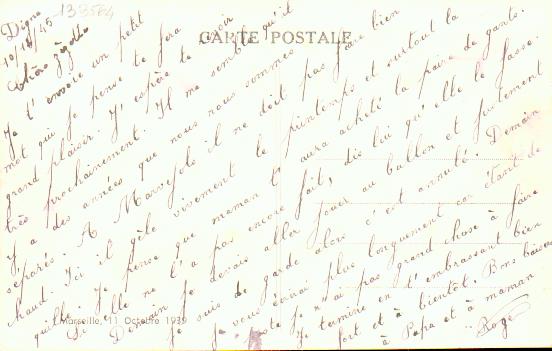 133584
CARTE POSTALE
Digne
10/12/45
Chère
Je t'envoie un petit
mot qui je pense te fera
grand plaisir. J'espère te voir
très prochainement. Il me semble qu'il
y a des années que nous nous sommes
séparés. A Marvejols il ne doit pas faire bien
chaud. Ici il gèle vivement le printemps et surtout la
quille. Je pense que maman t'aura acheté la paire de gants.
Si elle ne l'a pas encore fait, dis lui qu'elle le fasse.
Demain je devais aller jouer au ballon et justement
je suis de garde alors c'est annulé. Demain
je vous écrirai plus longuement car étant de
poste je n'ai pas grand chose à faire
Je termine en t'embrassant bien
fort et à bientôt. Bons baisers
à Papa et à maman
Roger
Marseille, 11 Octobre 1939